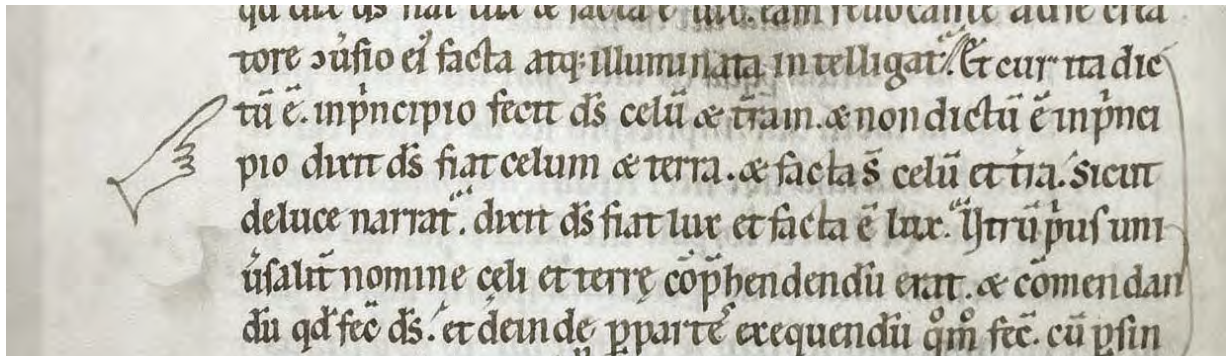 qd dix ds fiat lux & facta ē lux. tam revocante ad se crea
tore ɔūsio ei facta atq; illuminata intelligat. Et cur ita dic
tū ē. inpncipio fecit ds celū & tr̄am. & non dictū ē inpnci
pio dixit ds fiat celum & terra. & facta s̄ celū et tr̄a. Sicut
deluce narrat. dixit ds fiat lux et facta ē lux. Utrū pus uni
ūsalit̄ nomine celi et terrę cōp̄hendendū erat. & cōmendan
dū qd̄ fec̄ ds. et deinde p̱parte exequendū qōm̄ fec̄. cū p̱sin